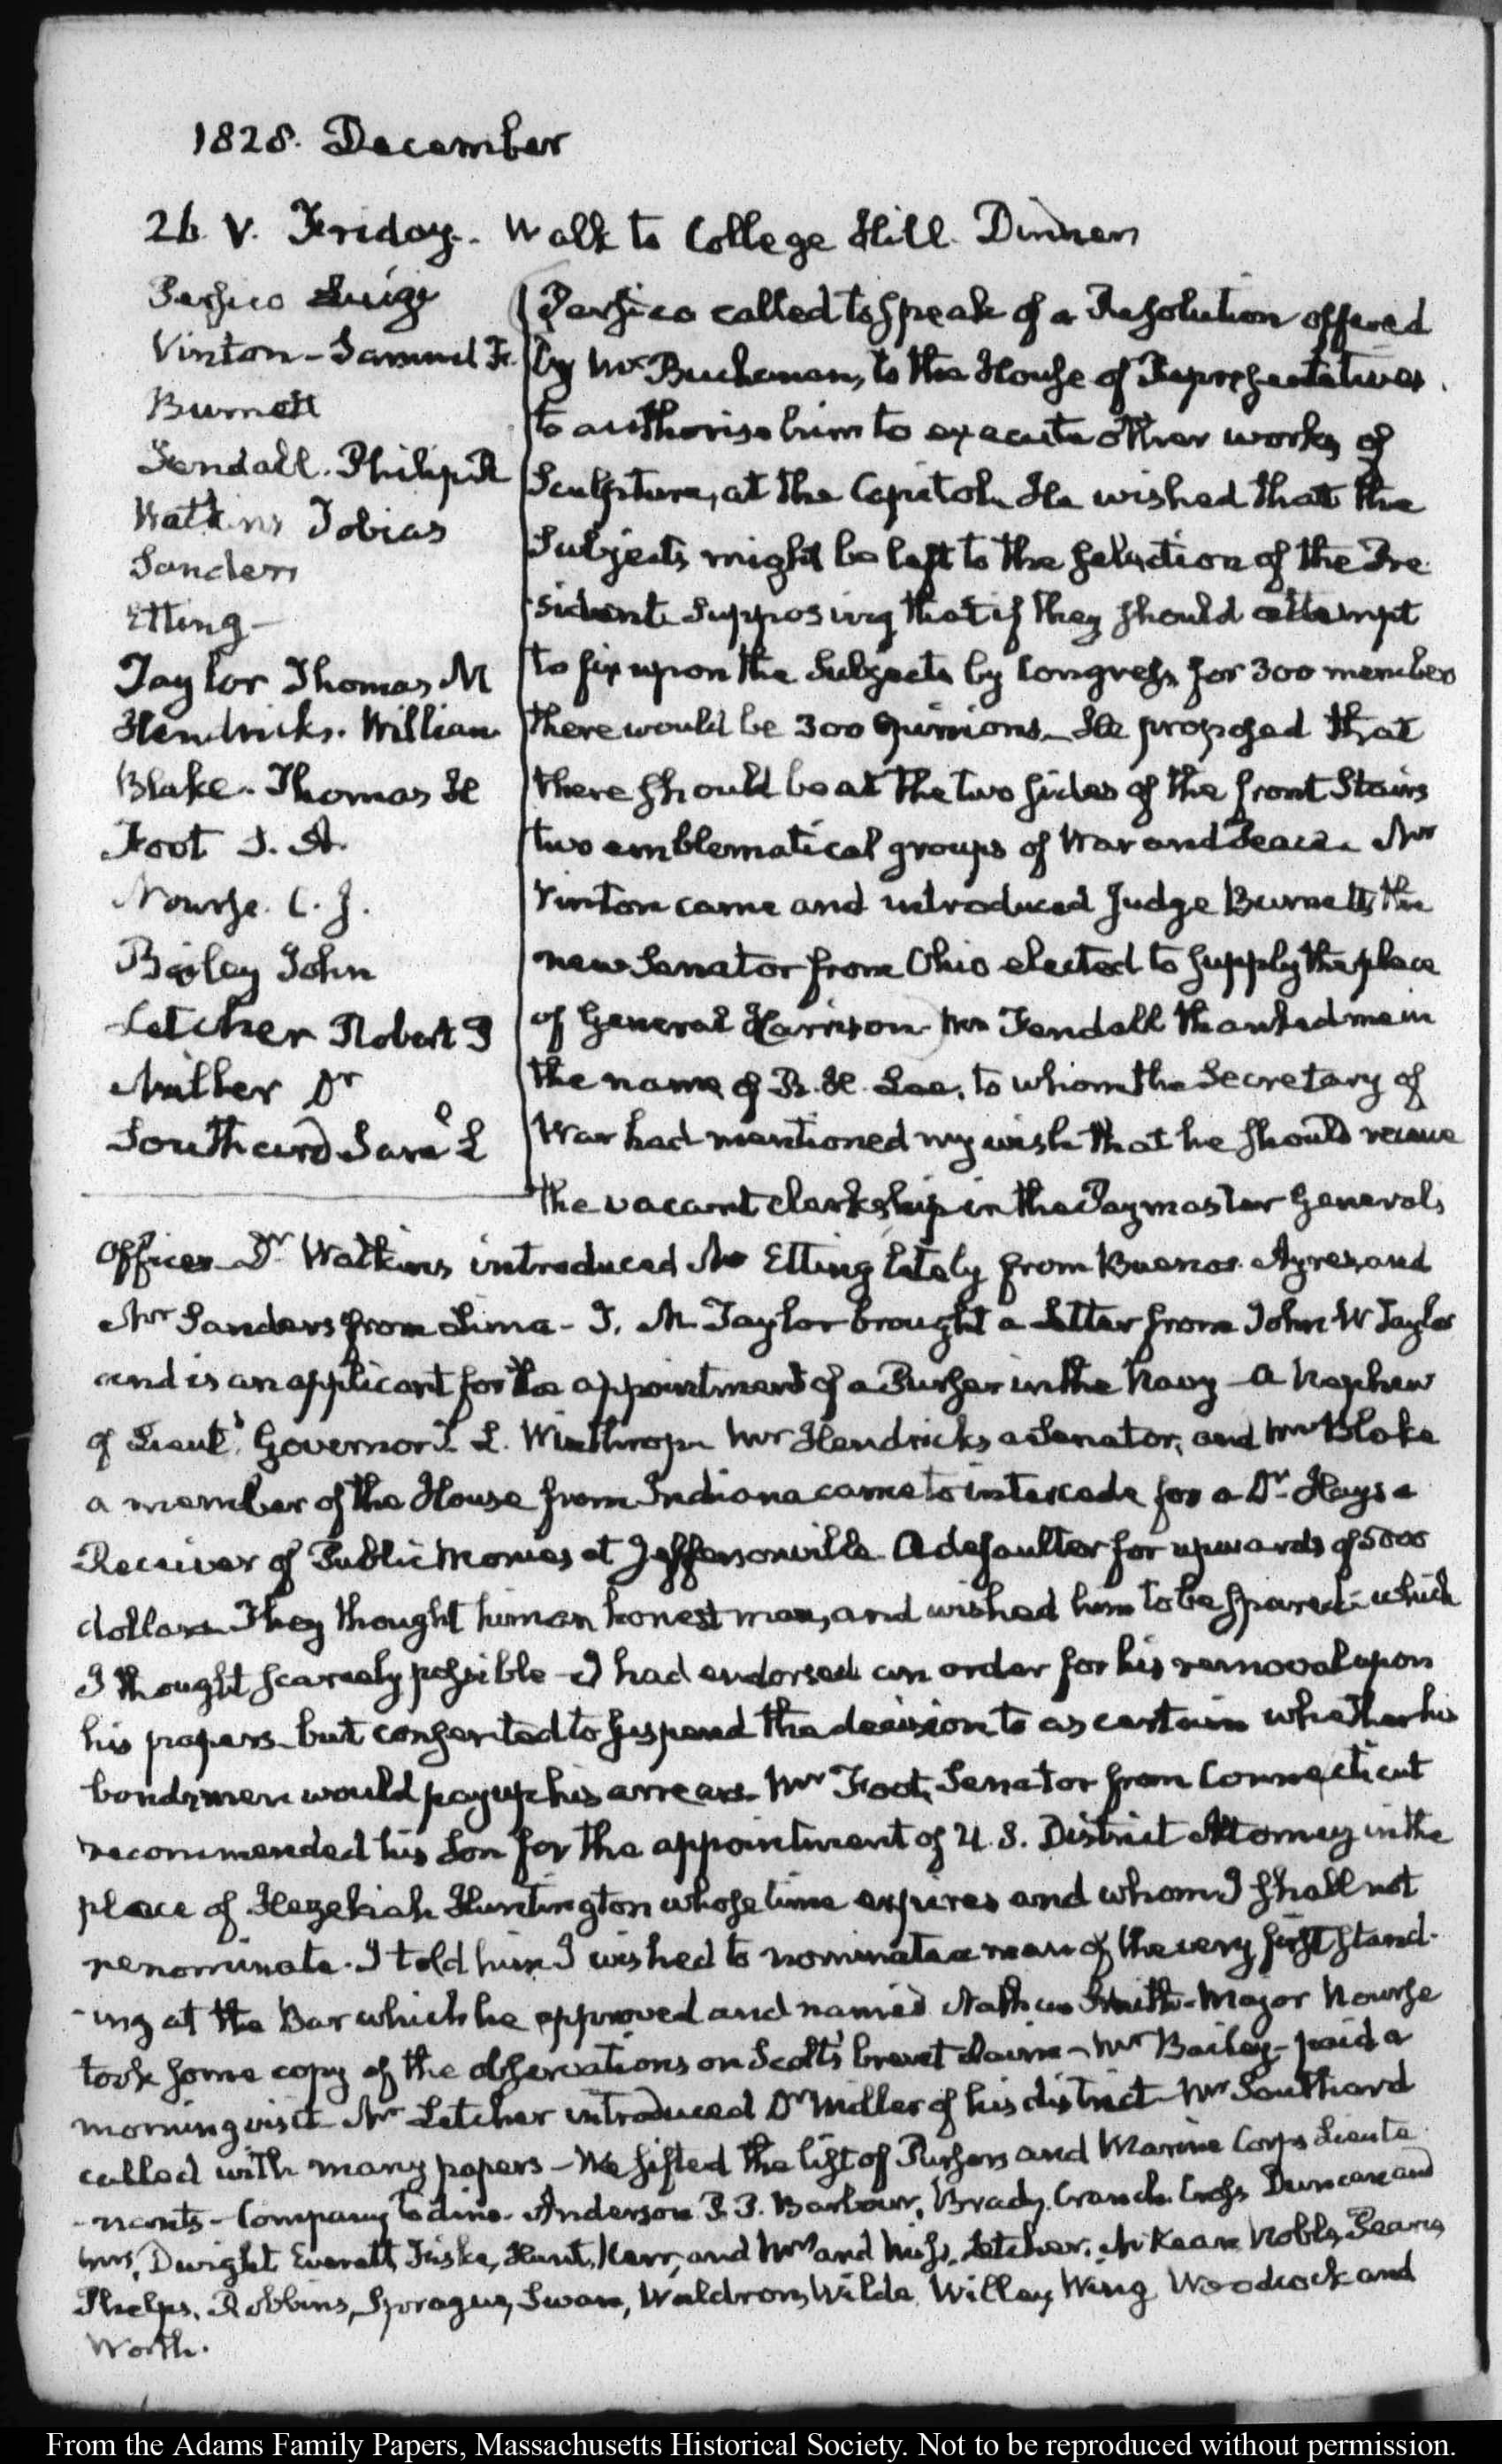 1828. December
26. V. Friday. Walk to College Hill. Dinner
Persico Luigi
Vinton - Samuel F.
Burnett
Fendall. Philip R
Watkins Tobias
Sanders
Etting -
Taylor Thomas M
Hendricks. William
Blake. Thomas H
Foot S. A.
Nourse. C. J.
Bailey John
Letcher Robert P
Miller Dr
Southard Saml L
Persico called to speak of a Resolution offered
by Mr Buchanan, to the House of Representatives
to authorise him to execute other works of
Sculpture, at the Capitol. He wished that the
Subjects might be left to the selection of the Pre
-sident Supposing that if they should attempt
to fix upon the Subjects by Congress for 300 members
there would be 300 opinions - He proposed that
there should be at the two sides of the front Stairs
two emblematical groups of War and Peace. Mr
Vinton came and introduced Judge Burnett, the
new Senator from Ohio elected to supply the place
of General Harrison - Mr Fendall thanked me in
the name of R. H. Lee, to whom the Secretary of
War had mentioned my wish that he should receive
the vacant clerkship in the Paymaster General's
Office. Dr Watkins introduced Mr Etting lately from Buenos Ayres, and
Mr Sanders from Lima - T. M Taylor brought a Letter from John W Taylor
and is an applicant for the appointment of a Purser in the Navy - a Nephew
of Lieutt Governor T. L. Winthrop. Mr Hendricks a Senator, and Mr Blake
a member of the House from Indiana came to intercede for a Dr Hays a
Receiver of Public Monies at Jeffersonville. A defaulter for upwards of 5000
dollars. They thought him an honest man, and wished him to be spared - which
I thought scarcely possible - I had endorsed an order for his removal upon
his papers - but consented to suspend the decision to ascertain whether his
bondsmen would pay up his arrears. Mr Foot, Senator from Connecticut
recommended his Son for the appointment of U. S. District Attorney in the
place of Hezekiah Huntington whose time expires and whom I shall not
renominate. I told him I wished to nominate a man of the very first stand-
-ing at the Bar which he approved and named Nathan Smith - Major Nourse
took home copy of the observations on Scott's brevet claim - Mr Bailey - paid a
morning visit. Mr Letcher introduced Dr Miller of his district - Mr Southard
called with many papers - We sifted the list of Pursers and Marine Corps Lieute
-nants - Company to dine. Anderson P. P. Barbour, Brady, Cranch. Cross Duncan and
Mrs, Dwight Everett, Fiske, Hunt, Kerr, and Mrs and Miss, Letcher, McKean Noble, Pearce
Phelps, Robbins, Sprague, Swan, Waldron, Wilde, Willey, Wing Woodcock and
Worth.
From the Adams Family Papers, Massachusetts Historical Society. Not to be reproduced without permission.